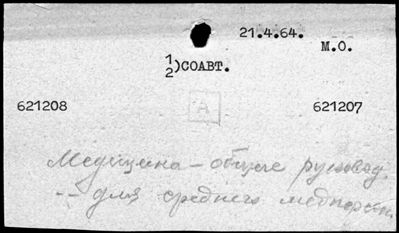 21.4.64.
М.О.
1)
2)СОАВТ.
621208 621207
А
Медицина – общие руковод.
-- для среднего медперсон.